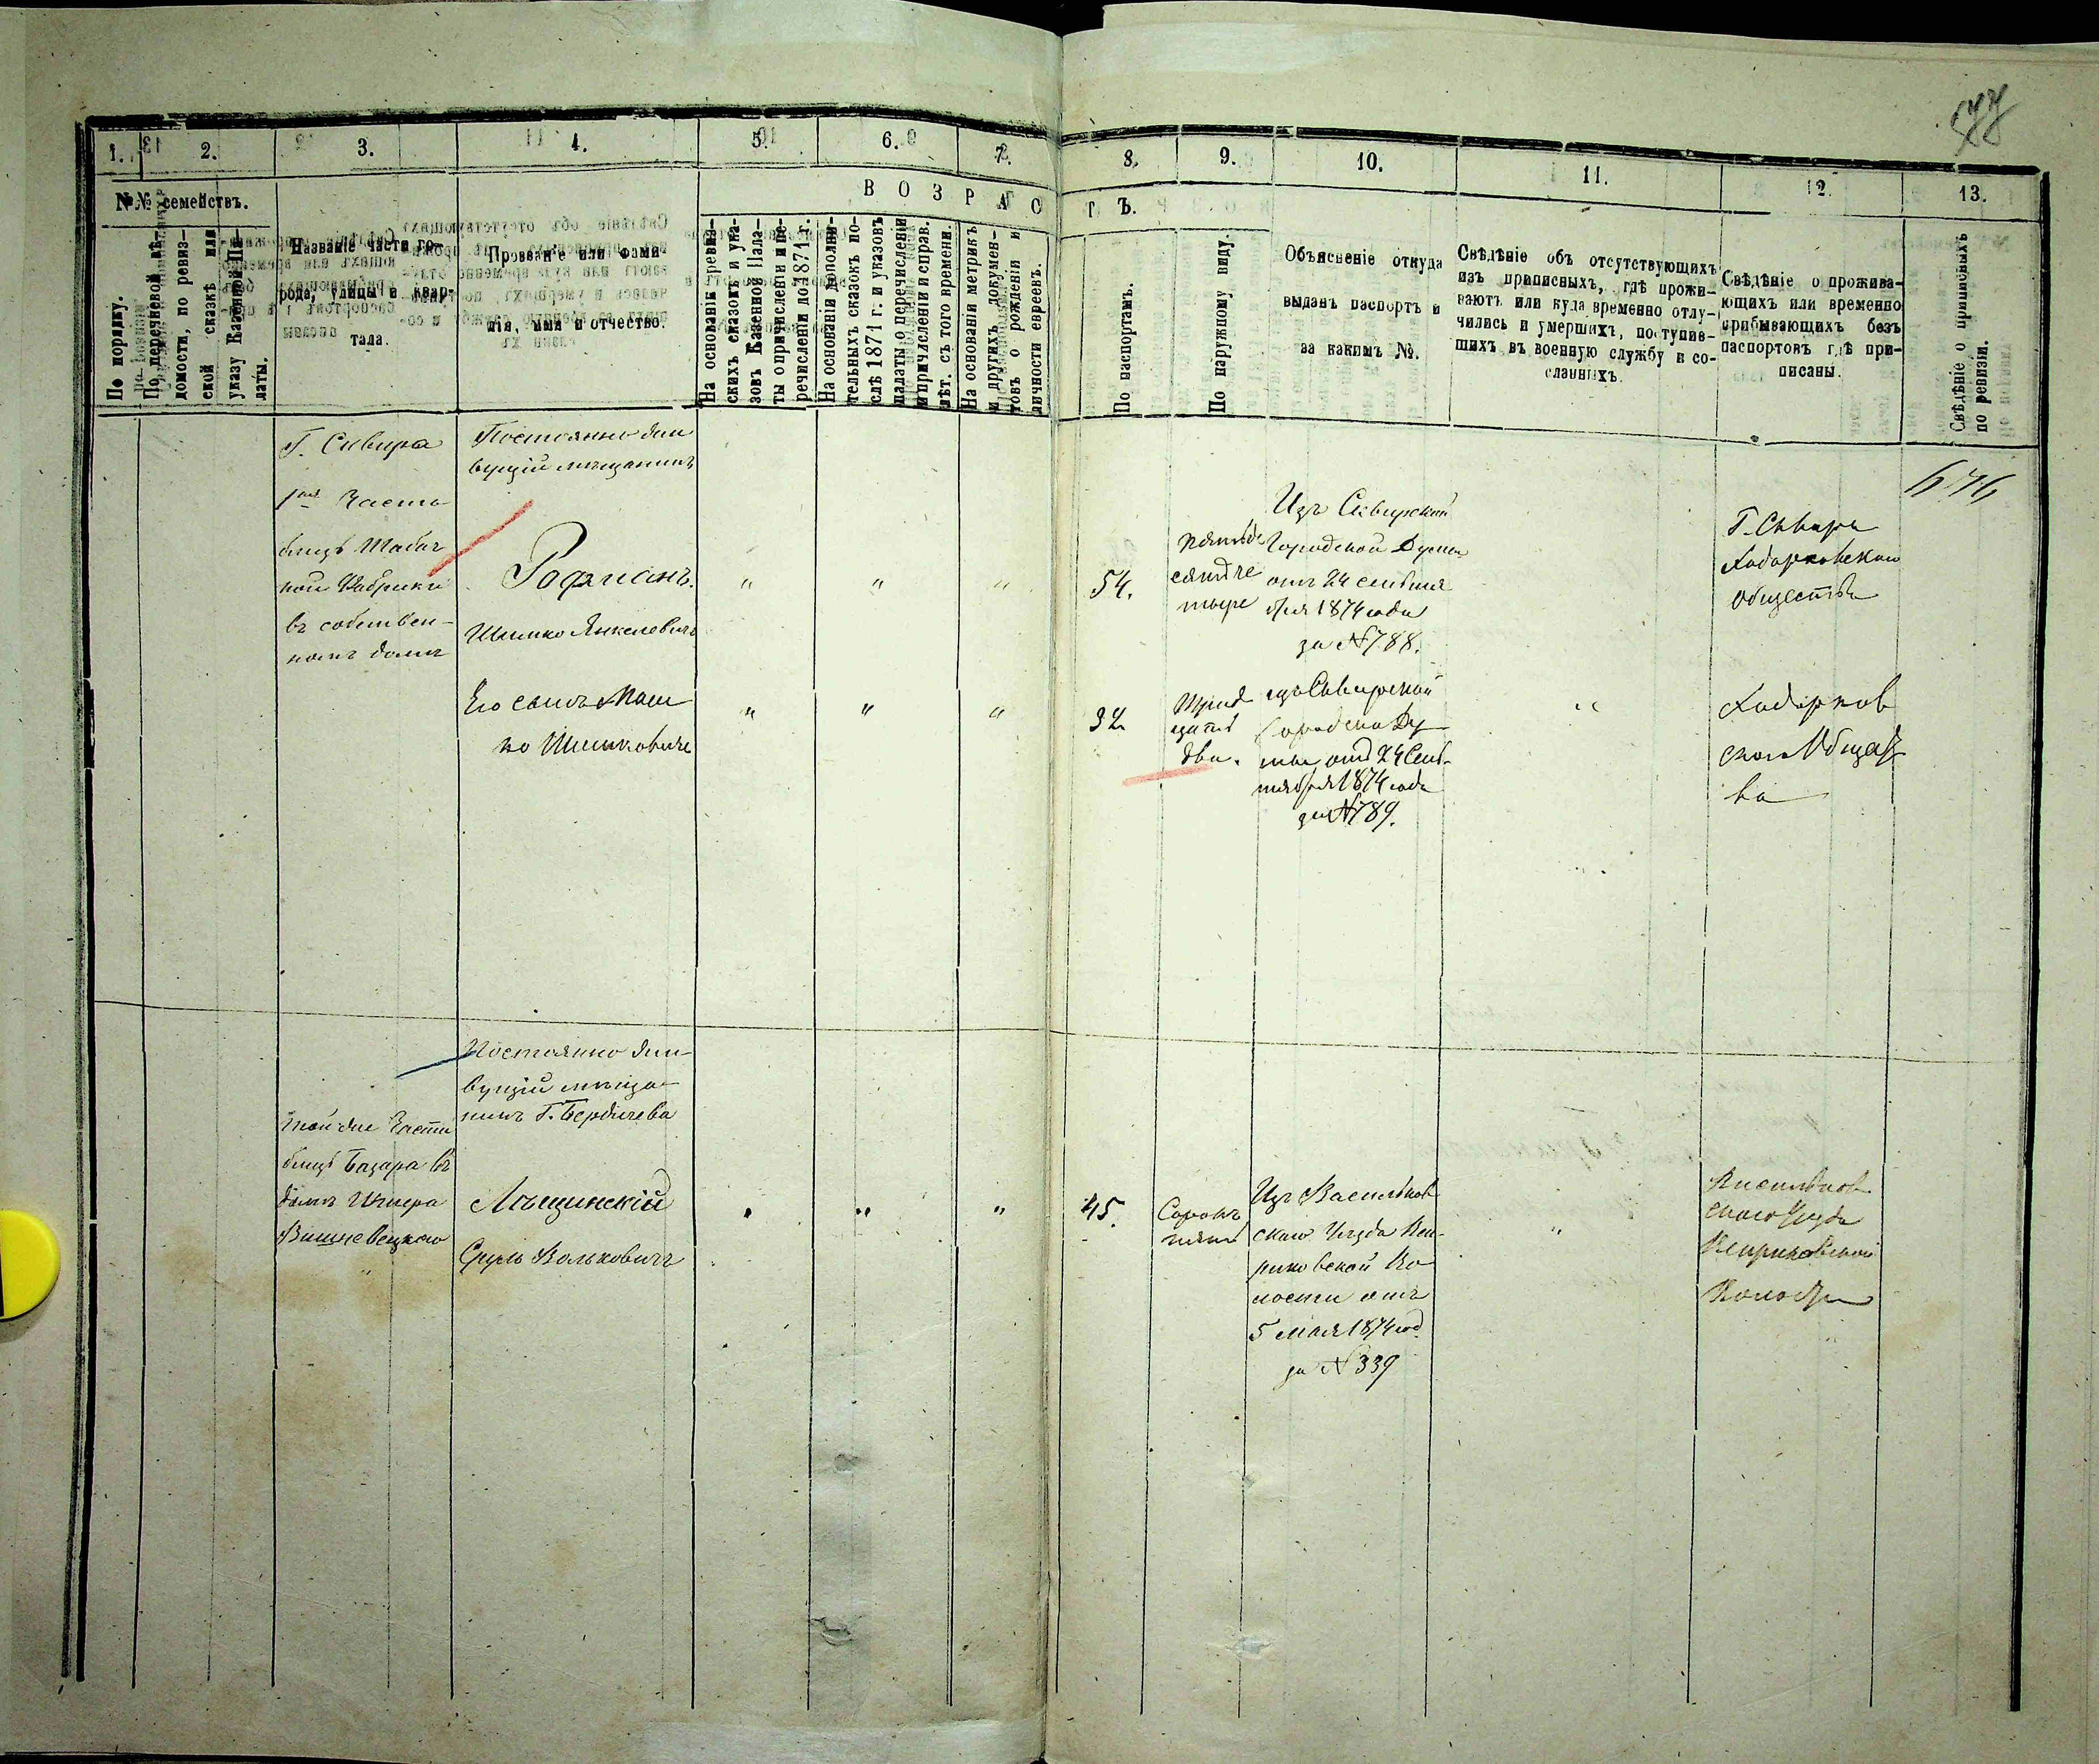 77
1. 2. 3. 4. 5. 6. 7. 8. 9. 10. 11. 12. 13.
№№ семействъ.
В О З Р А С Т Ъ.
По порядку.
По перечневой вѣ-
домости, по ревиз-
ской сказкѣ или
указу Казенной Па-
латы.
Названіе части го-
рода, улицы и квар-
тала.
Прозваніе или Фами-
лія, имя и отчество.
На основаніи ревиз-
скихъ сказокъ и ука-
зовъ Казенной Пала-
ты о причисленіи и пе-
речисленіи до 1871 г.
На основаніи дополни-
тельныхъ сказокъ по-
слѣ 1871 г. и указовъ
палаты о перечисленіи
и причисленіи и справ.
лѣт. съ того времени.
На основаніи метрикъ
и другихъ докумен-
товъ о рожденіи и
личности евреевъ.
По паспортамъ.
По наружному виду.
Объясненіе откуда
выданъ паспортъ и
за какимъ №.
Свѣдѣніе объ отсутствующихъ
изъ приписныхъ, гдѣ прожи-
ваютъ или куда временно отлу-
чились и умершихъ, поступив-
шихъ въ военную службу и со-
сланныхъ.
Свѣдѣніе о прожива-
ющихъ или временно
прибывающихъ безъ
паспортовъ гдѣ при-
писаны.
Свѣдѣніе о приписныхъ
по ревизіи.
Г. Сквира
1я Часть
близь Табач
ной Фабрики
въ собствен-
номъ домѣ
Постоянно жи
вущій мѣщанинъ
Рофманъ.
Шимко Янкелевичъ
" " "
54.
пятьде
сятъ че
тыре
Изъ Сквирской
Городской Думы
отъ 24 сентя
бря 1874 года
за №788.
Г. Сквира
Ходорковского
Общества
676
Его сынъ Мош
ко Шимковичъ
" " "
32
Трид
цать
два.
изъ Сквирской
Городской Ду
мы отъ 24 Сен-
тября 1874 года
за №789.
"
Ходорков
ского Общест
ва
Той же Части
близь Базара въ
домѣ Шмера
Вишневецкого
Постоянно жи-
вущій мѣща-
нинъ Г. Бердичева
Лѣщинскій
Сруль Вольковичъ
" " "
45.
Сорокъ
пять
Изъ Васильков
скаго Уѣзда
волости отъ
5 мая 1874 год
за №339
"
Васильков
скаго Уѣзда
Волости